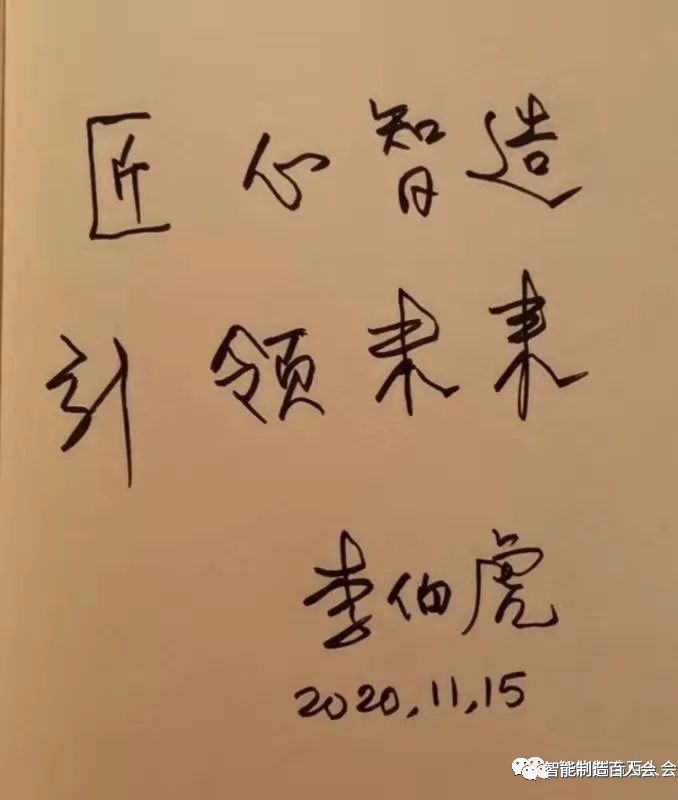 匠心智造
引领未来
李伯虎
2020,11,15
智能制造百万会